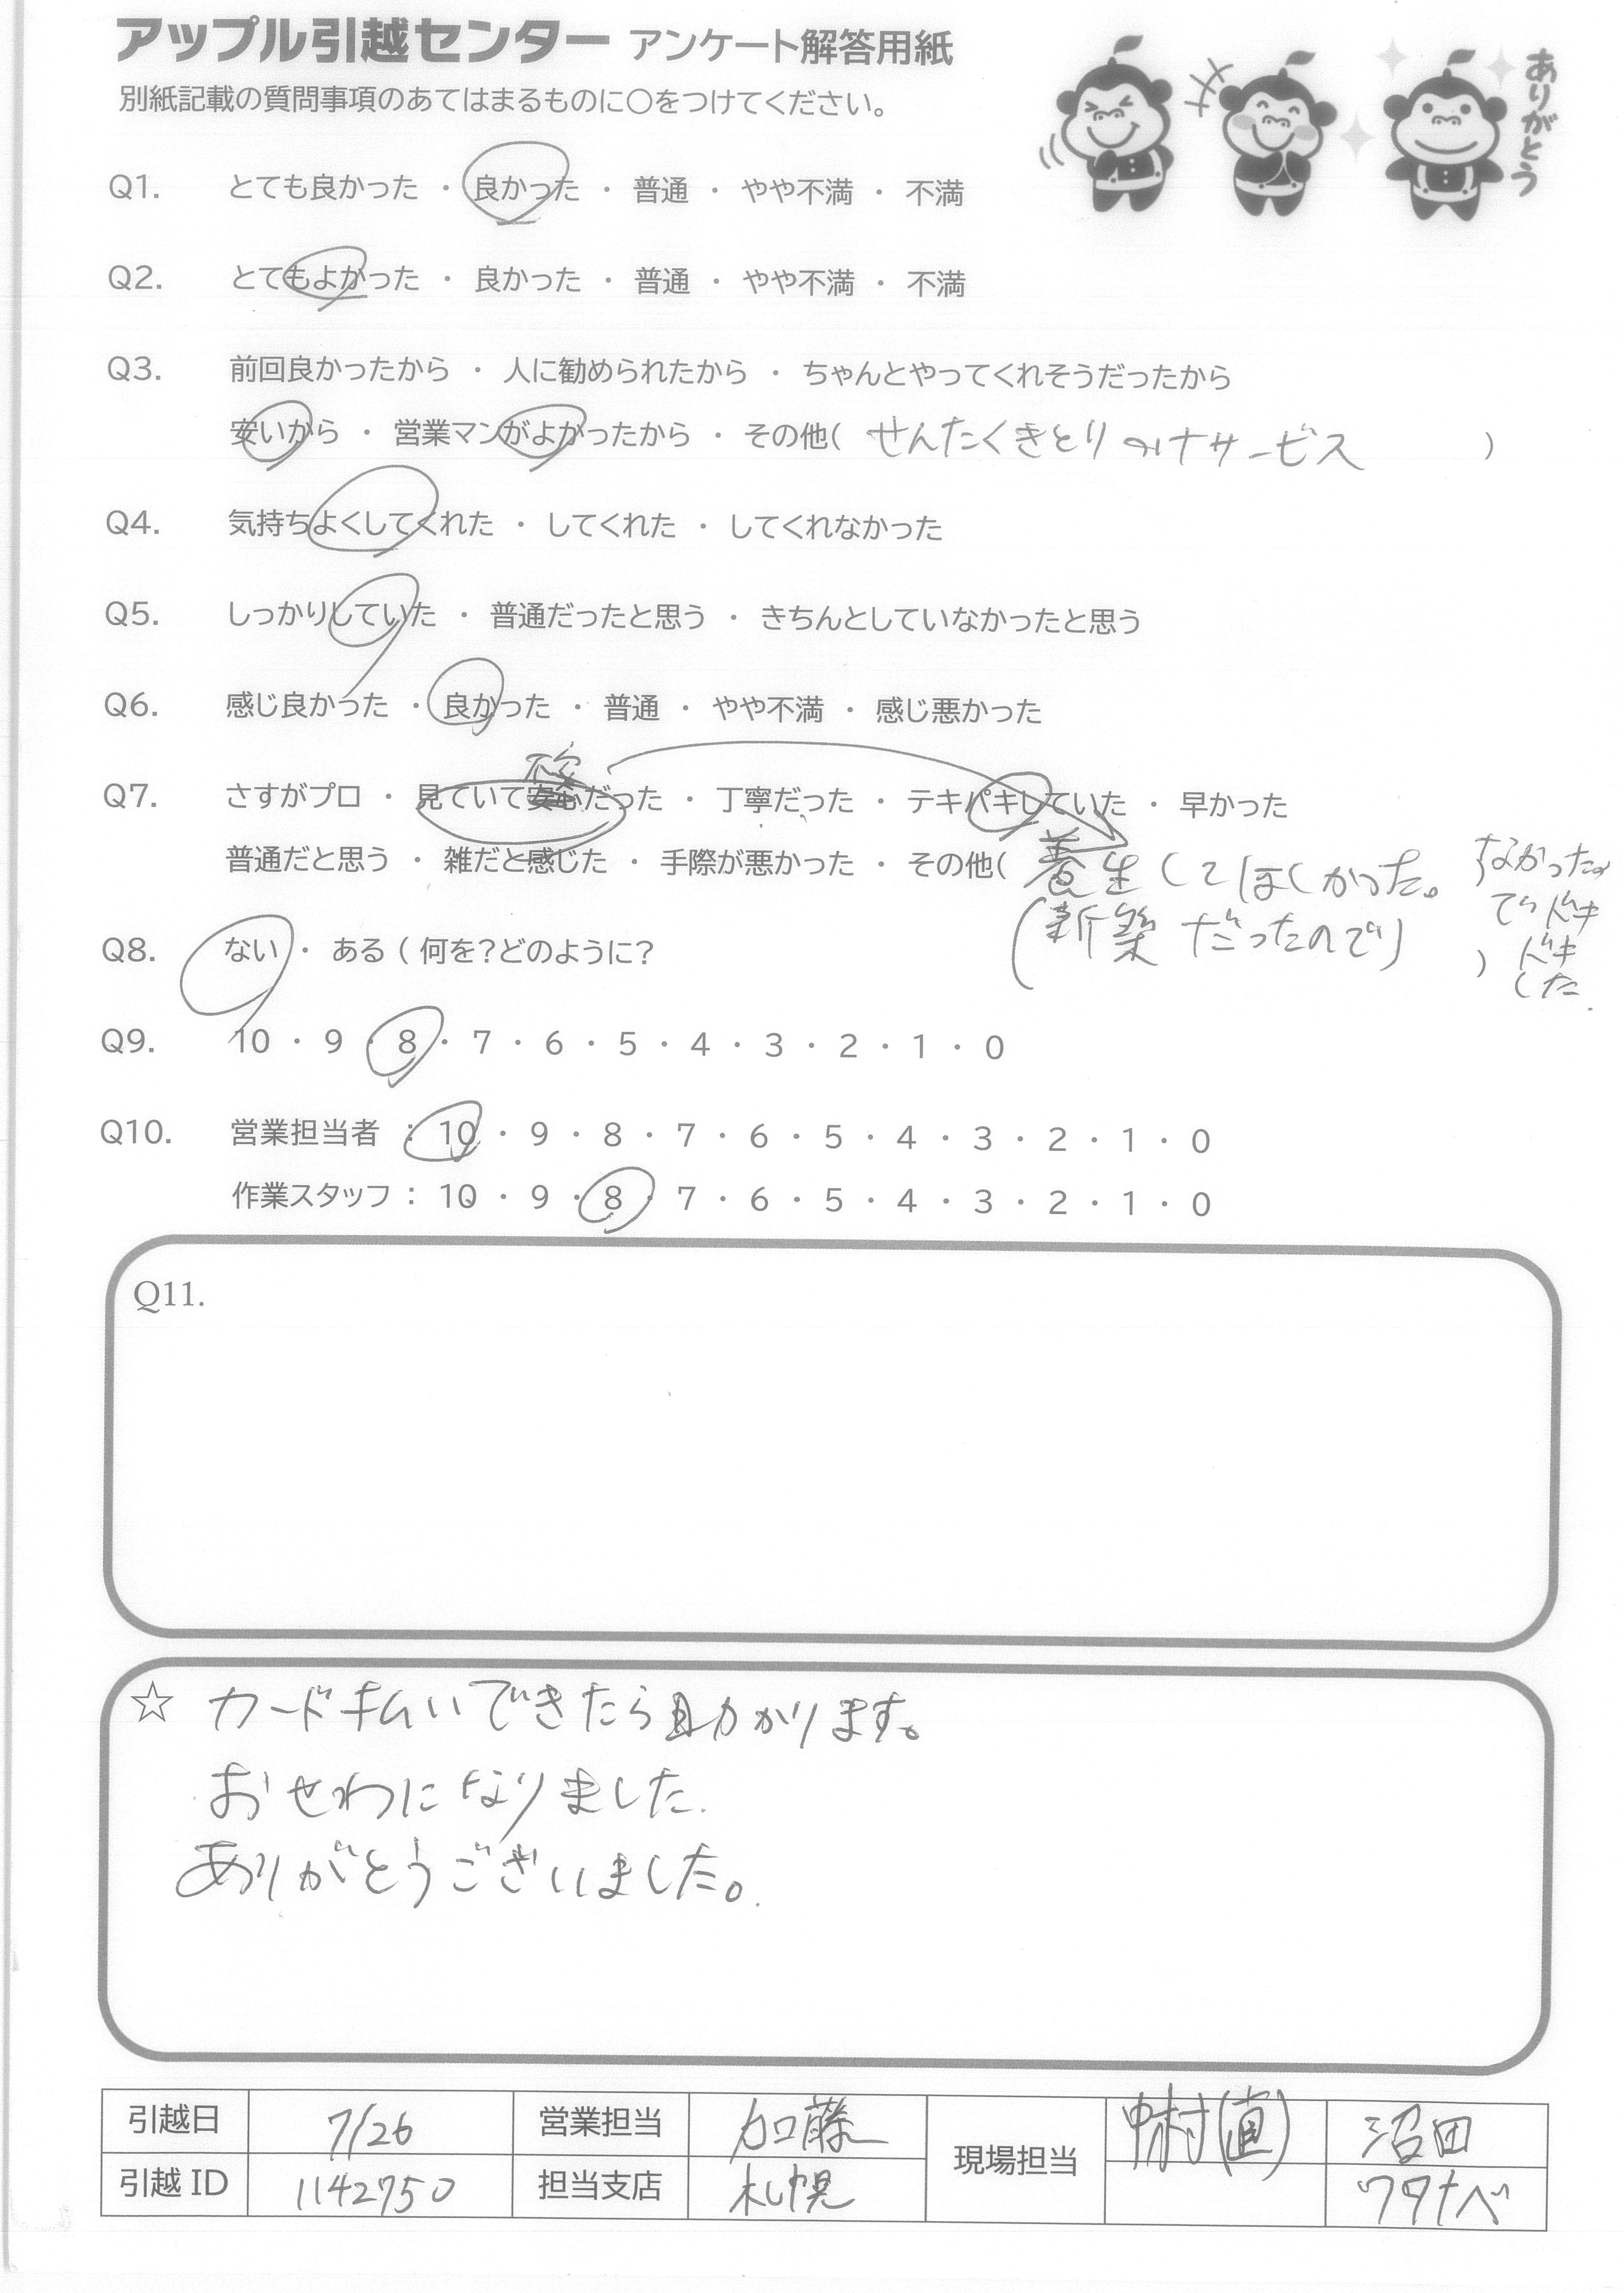 アップル引越センター アンケート解答用紙
別紙記載の質問事項のあてはまるものに〇をつけてください。
ありがとう
Q1. とても良かった ・ 良かった ・ 普通 ・ やや不満 ・ 不満
Q2. とてもよかった ・ 良かった ・ 普通 ・ やや不満 ・ 不満
Q3. 前回良かったから ・ 人に勧められたから ・ ちゃんとやってくれそうだったから
安いから ・ 営業マンがよかったから ・ その他( せんたくきとりつけサービス )
Q4. 気持ちよくしてくれた ・ してくれた ・ してくれなかった
Q5. しっかりしていた ・ 普通だったと思う ・ きちんとしていなかったと思う
Q6. 感じ良かった ・ 良かった ・ 普通 ・ やや不満 ・ 感じ悪かった
不安
Q7. さすがプロ ・ 見ていて安心だった ・ 丁寧だった ・ テキパキしていた ・ 早かった
普通だと思う ・ 雑だと感じた ・ 手際が悪かった ・ その他( 養生してほしかった。
(新築だったので)
なかったの
でドキ
ドキ
した.
Q8. ない ・ ある ( 何を?どのように? )
Q9. 10 ・ 9 ・ 8 ・ 7 ・ 6 ・ 5 ・ 4 ・ 3 ・ 2 ・ 1 ・ 0
Q10. 営業担当者 : 10 ・ 9 ・ 8 ・ 7 ・ 6 ・ 5 ・ 4 ・ 3 ・ 2 ・ 1 ・ 0
作業スタッフ : 10 ・ 9 ・ 8 ・ 7 ・ 6 ・ 5 ・ 4 ・ 3 ・ 2 ・ 1 ・ 0
Q11.
☆ カード払いできたら助かります。
おせわになりました.
ありがとうございました。
引越日 7/26 営業担当 加藤 現場担当 中村(直) 沼田
引越 ID 1142750 担当支店 札幌 ワタナベ